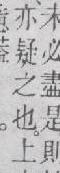 未必盡是則
亦疑之也。上